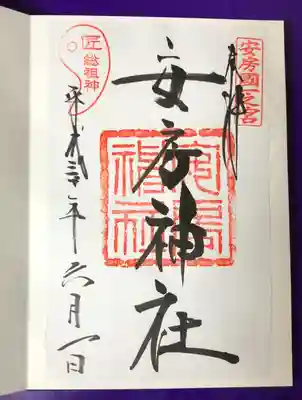 安房國一之宮
奉拝
安房神社
安房神社
匠
総祖神
平成三十年六月一日